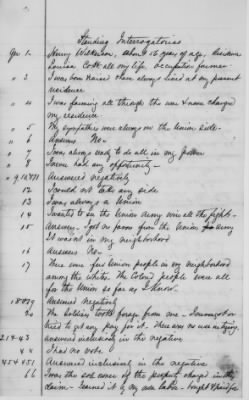 Standing Interrogatories
Qu 1. Henry Wilkerson, about 56 years of age, Residence
Louisa Co all my life, Occupation farmer
" 2 I was born raised & have always lived at my present
residence
" 4 I was farming all through the war & never changed
my residence
" 5 My sympathies were always on the Union side.
" 6 Answers No-
" 7 I was always ready to do all in my power
" 8 Never had any opportunity-
Answered negatively
12 I would not take any side
13 I was always a Union
14 I wanted to see the Union Army win all the fights.
15 Answer- Got no favors from the Union Army
It wasn't in my neighborhood
16 Answers No-
17 There were few Union people in my neighborhood
among the Whites. The Colored people were all
for the Union so far as I know.
Answered negatively
The Soldiers took forage from me
tried to get any pay for it. There was no use
answered in the negative
I had no vote.
Answered in the negative
66 I was the sole owner of the property charged in this
claim- earned it by my own labor- bought & paid for